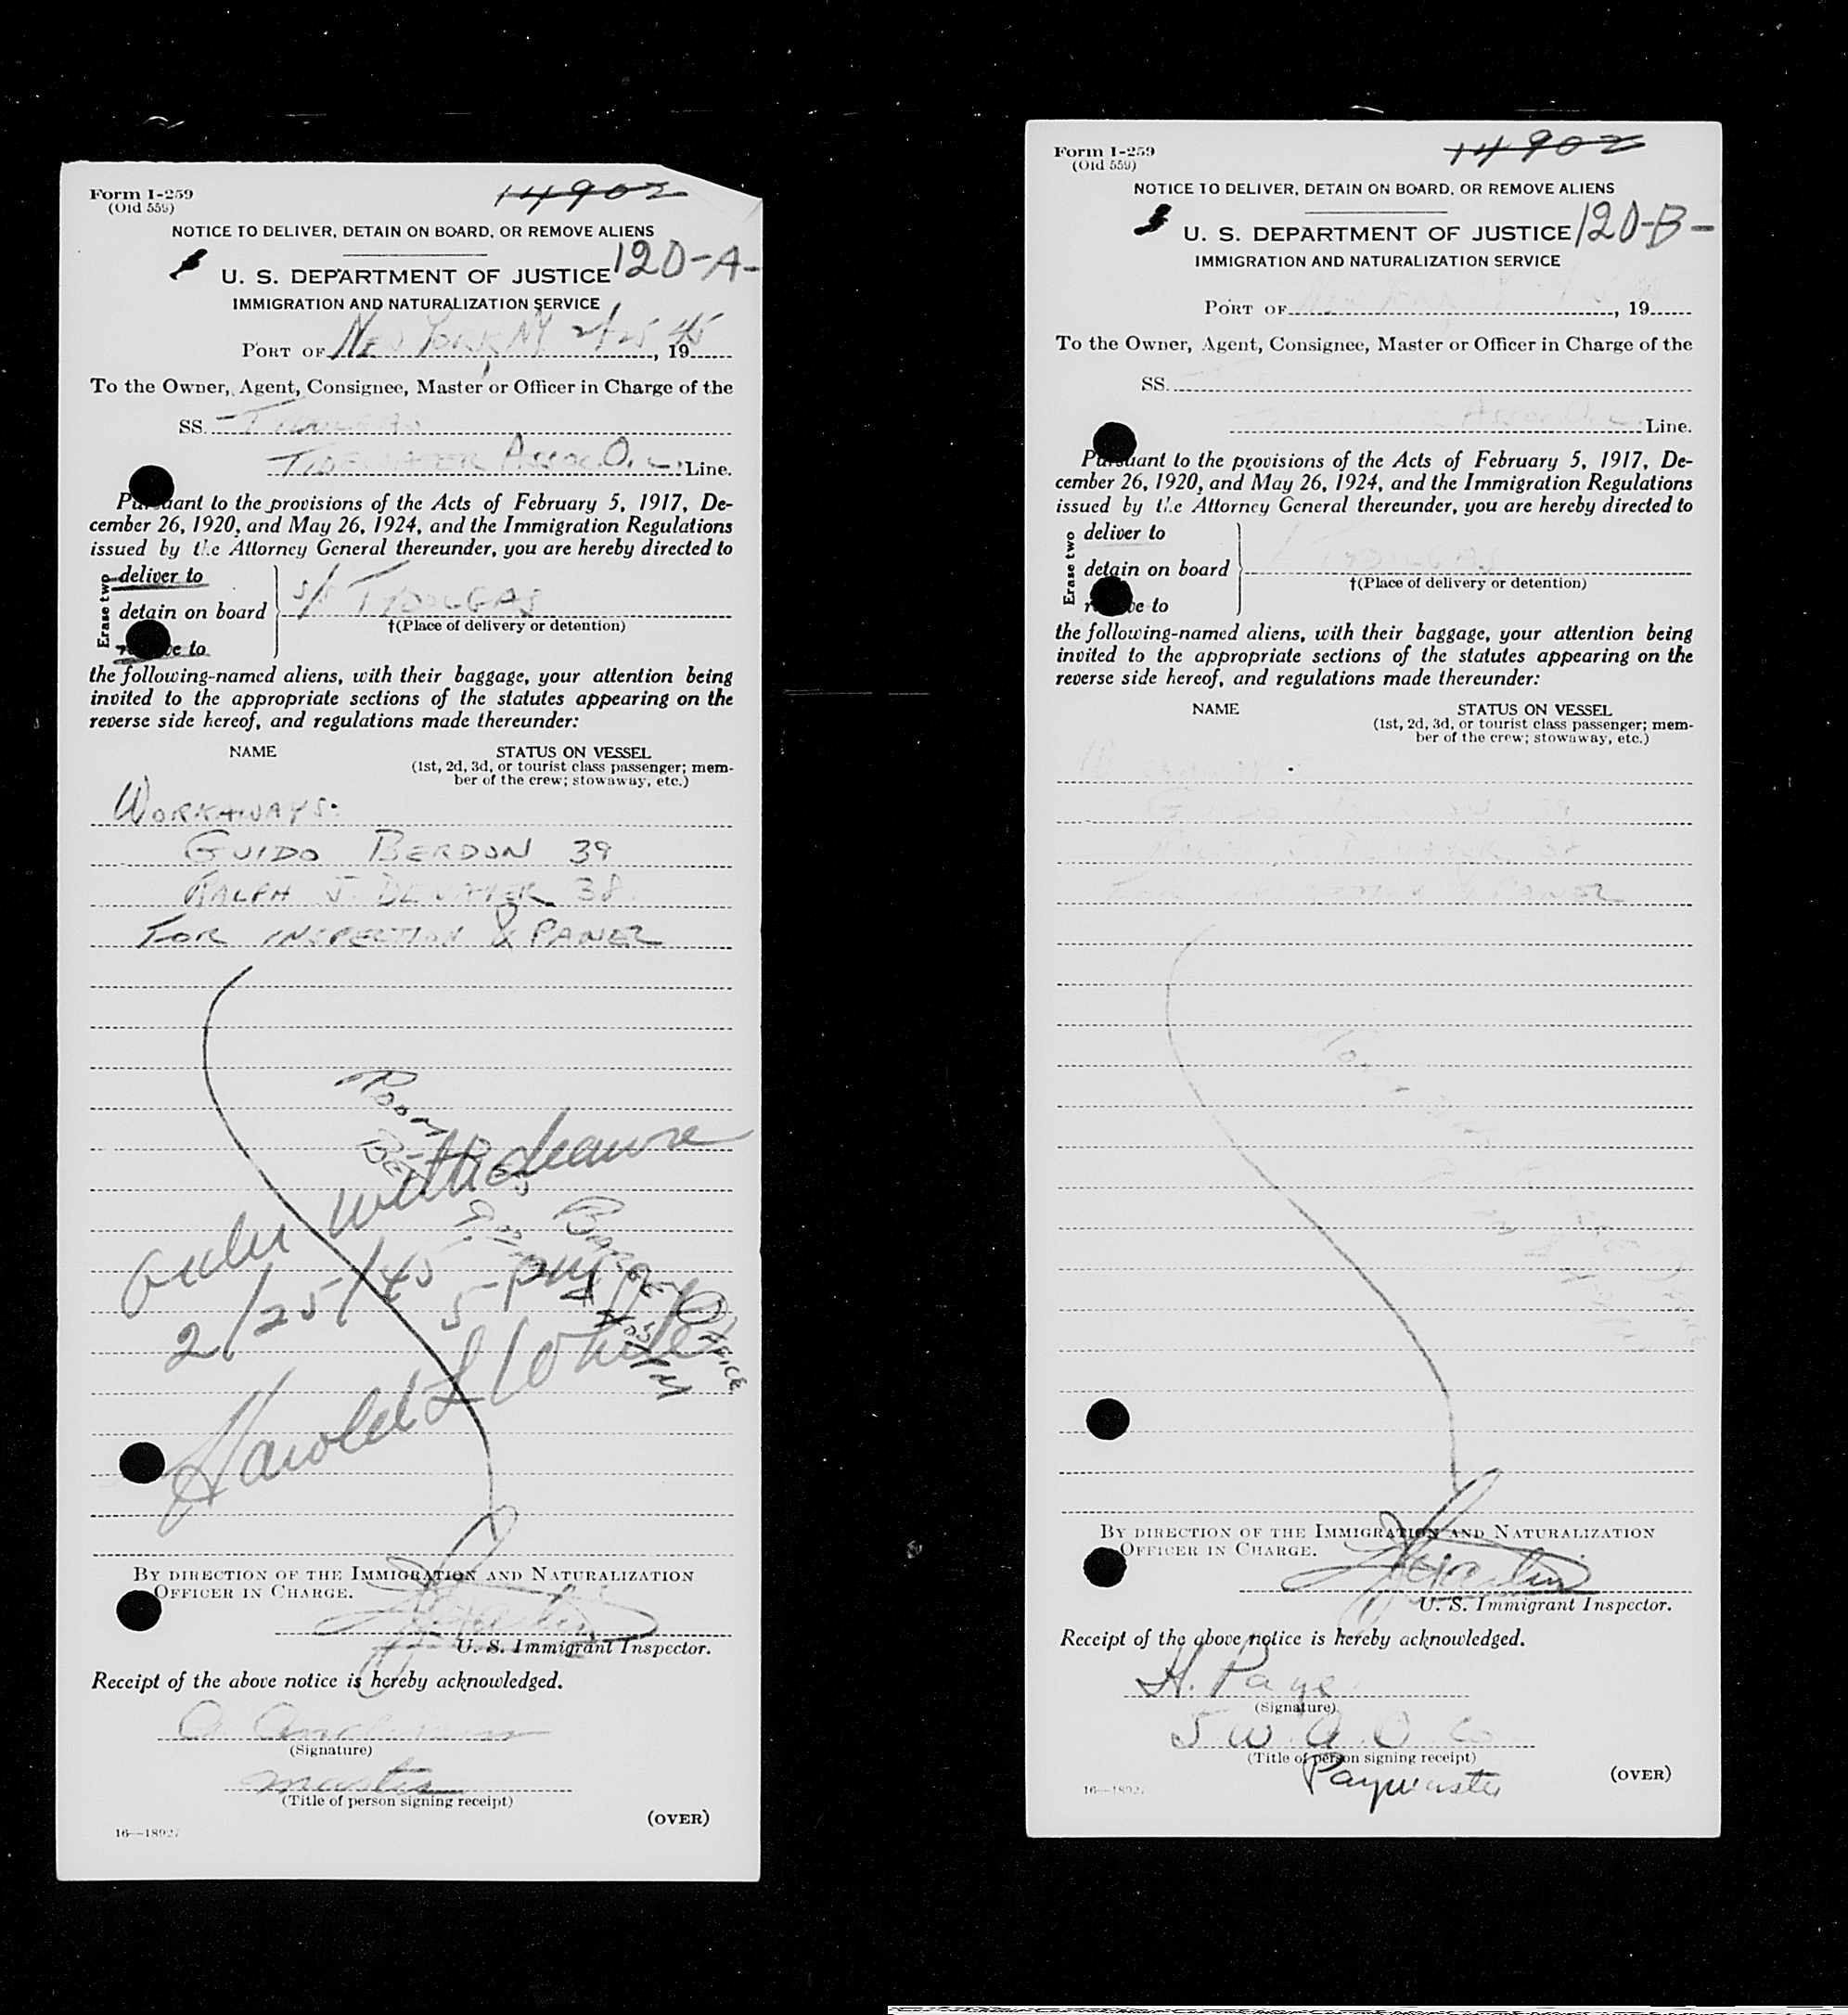 Form I-259
(Old 559)
14902
NOTICE TO DELIVER, DETAIN ON BOARD, OR REMOVE ALIENS
U. S. DEPARTMENT OF JUSTICE 120-A-
IMMIGRATION AND NATURALIZATION SERVICE
PORT OF NEW YORK, NY 2/25, 1945
To the Owner, Agent, Consignee, Master or Officer in Charge of the
SS.
TIDEWATER ASSOC. OIL Line.
Pursuant to the provisions of the Acts of February 5, 1917, De-
cember 26, 1920, and May 26, 1924, and the Immigration Regulations
issued by the Attorney General thereunder, you are hereby directed to
Erase two
deliver to
detain on board
re to
S/S TYDOLGAS
†(Place of delivery or detention)
the following-named aliens, with their baggage, your attention being
invited to the appropriate sections of the statutes appearing on the
reverse side hereof, and regulations made thereunder:
NAME STATUS ON VESSEL
(1st, 2d, 3d, or tourist class passenger; mem-
ber of the crew; stowaway, etc.)
WORKAWAYS:
GUIDO BERDON 39
RALPH J. 38
FOR INSPECTION & PANEL
ROOM
BARGE OFFICE
order withdrawn
2/25/45 5 pm
Harold L White
BY DIRECTION OF THE IMMIGRATION AND NATURALIZATION
OFFICER IN CHARGE.
U. S. Immigrant Inspector.
Receipt of the above notice is hereby acknowledged.
(Signature)
master
(Title of person signing receipt)
(OVER)
16—18927
Form I-259
(Old 559)
14902
NOTICE TO DELIVER, DETAIN ON BOARD, OR REMOVE ALIENS
U. S. DEPARTMENT OF JUSTICE 120-B-
IMMIGRATION AND NATURALIZATION SERVICE
PORT OF , 19
To the Owner, Agent, Consignee, Master or Officer in Charge of the
SS.
ASSOC. OIL Line.
Pursuant to the provisions of the Acts of February 5, 1917, De-
cember 26, 1920, and May 26, 1924, and the Immigration Regulations
issued by the Attorney General thereunder, you are hereby directed to
Erase two
deliver to
detain on board
re to
TYDOLGAS
†(Place of delivery or detention)
the following-named aliens, with their baggage, your attention being
invited to the appropriate sections of the statutes appearing on the
reverse side hereof, and regulations made thereunder:
NAME STATUS ON VESSEL
(1st, 2d, 3d, or tourist class passenger; mem-
ber of the crew; stowaway, etc.)
& PANEL
BY DIRECTION OF THE IMMIGRATION AND NATURALIZATION
OFFICER IN CHARGE.
U. S. Immigrant Inspector.
Receipt of the above notice is hereby acknowledged.
H. Page
(Signature)
T W A O Co
(Title of person signing receipt)
Paymaster
(OVER)
16—18927